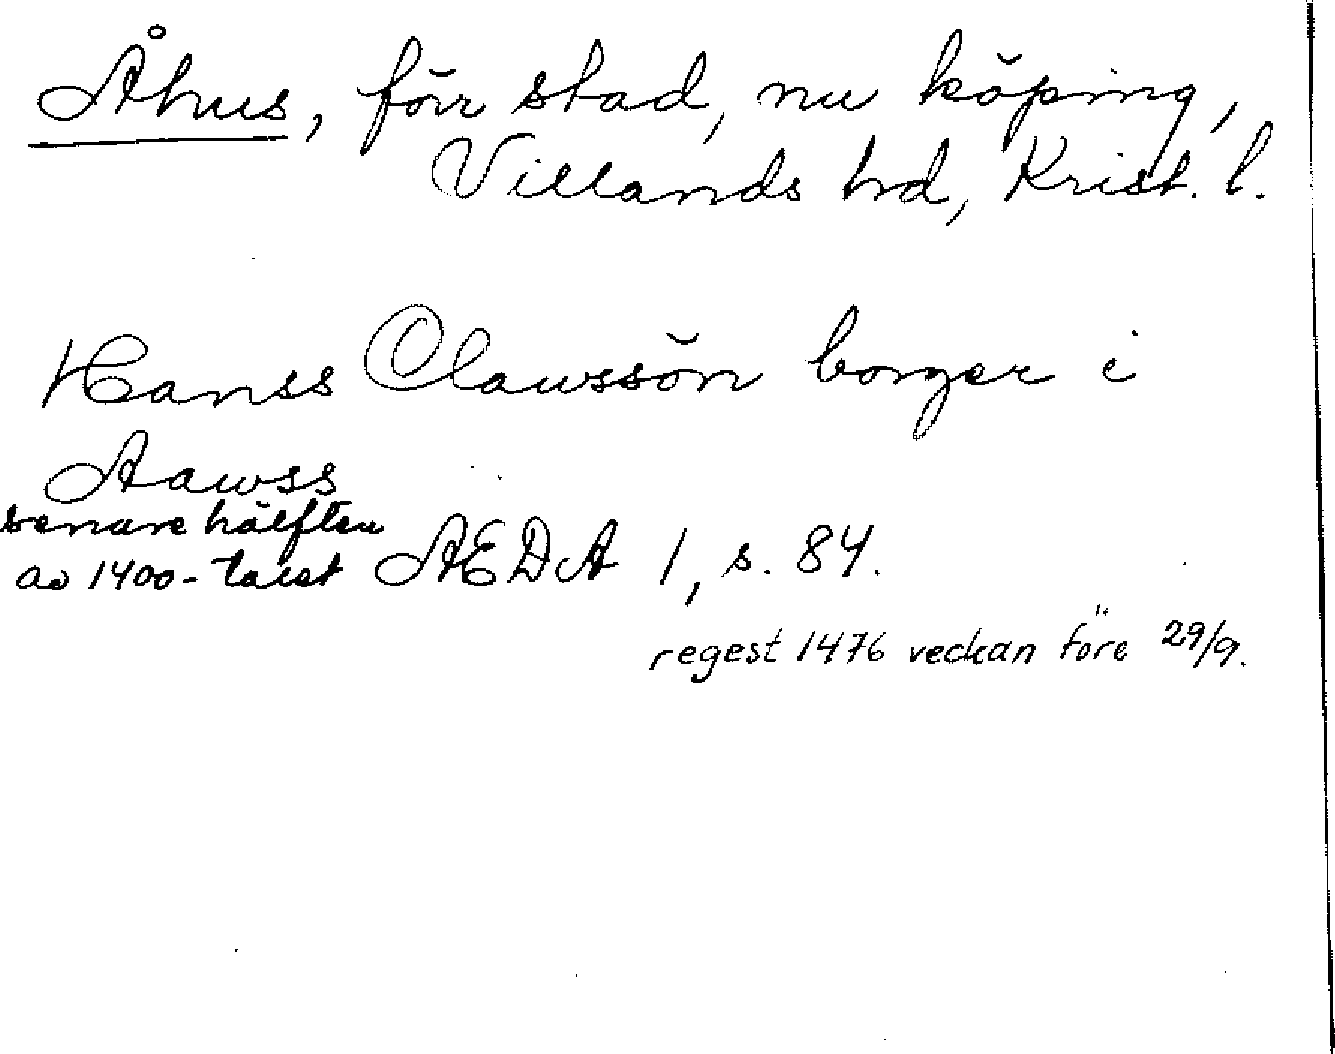 Åhus, förr stad, nu köping,
Villands hd, Krist. l.
Hanss Clawssön borger i
Aawss
senare hälften
av 1400-talet AEDA 1, s. 84.
regest 1476 veckan före 29/9.